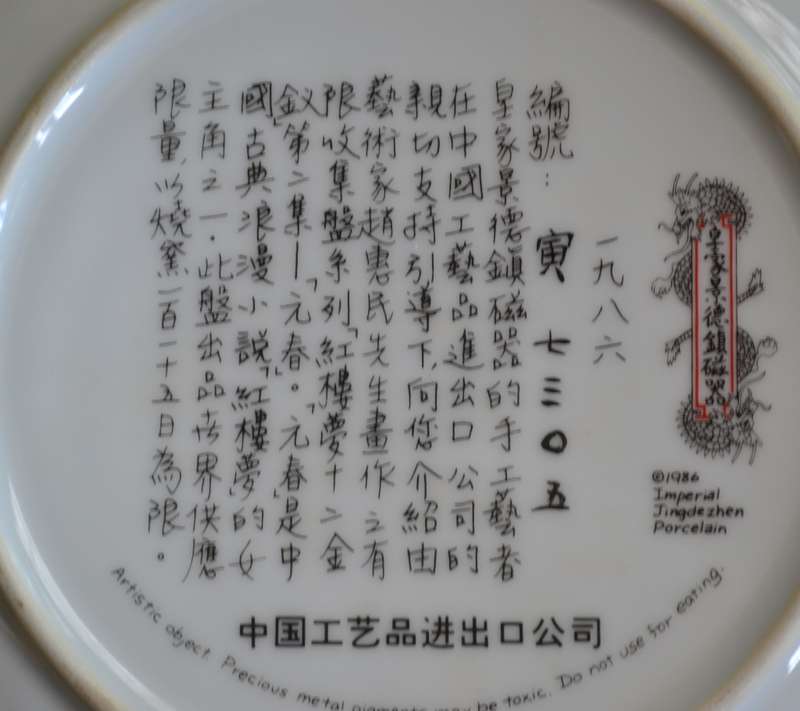 皇家景德鎮磁器品
©1986
Imperial
Jingdezhen
Porcelain
一九八六
編號：寅 七三〇五
皇家景德鎮磁器的手工藝者
在中國工藝品進出口公司的
親切支持引導下,向您介紹由
藝術家趙惠民先生畫作之有
限收集盤系列「紅樓夢十二金
釵」第二集—「元春」。「元春」是中
國古典浪漫小說「紅樓夢」的女
主角之一．此盤出品世界供應
限量,以燒窯一百一十五日為限。
中国工艺品进出口公司
Artistic object. Precious metal pigments may be toxic. Do not use for eating.